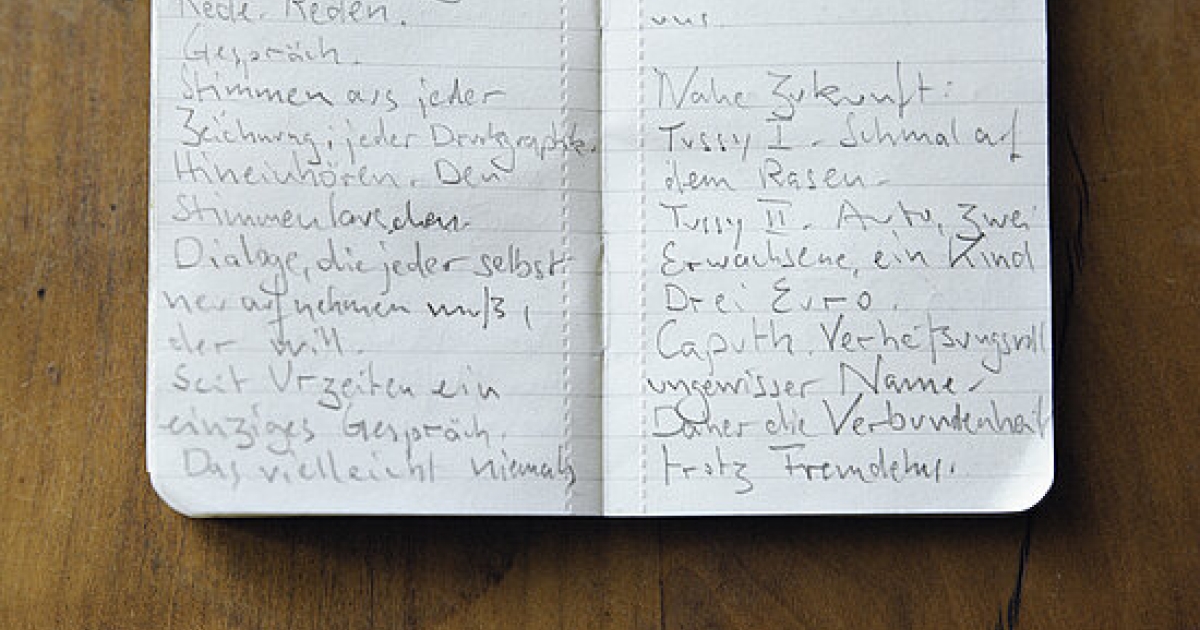 Rede. Reden.
Gespräch.
Stimmen aus jeder
Zeichnung, jeder Druckgraphik.
Hineinhören. Den
Stimmen lauschen.
Dialoge, die jeder selbst
neu aufnehmen muß,
der will.
Seit Urzeiten ein
einziges Gespräch.
Das vielleicht niemals
Nahe Zukunft:
Tussy I. Schmal auf
dem Rasen.
Tussy II. Auto, Zwei
Erwachsene, ein Kind
Drei Euro.
Caputh. Verheißungsvoll
ungewisser Name.
Daher die Verbundenheit
trotz